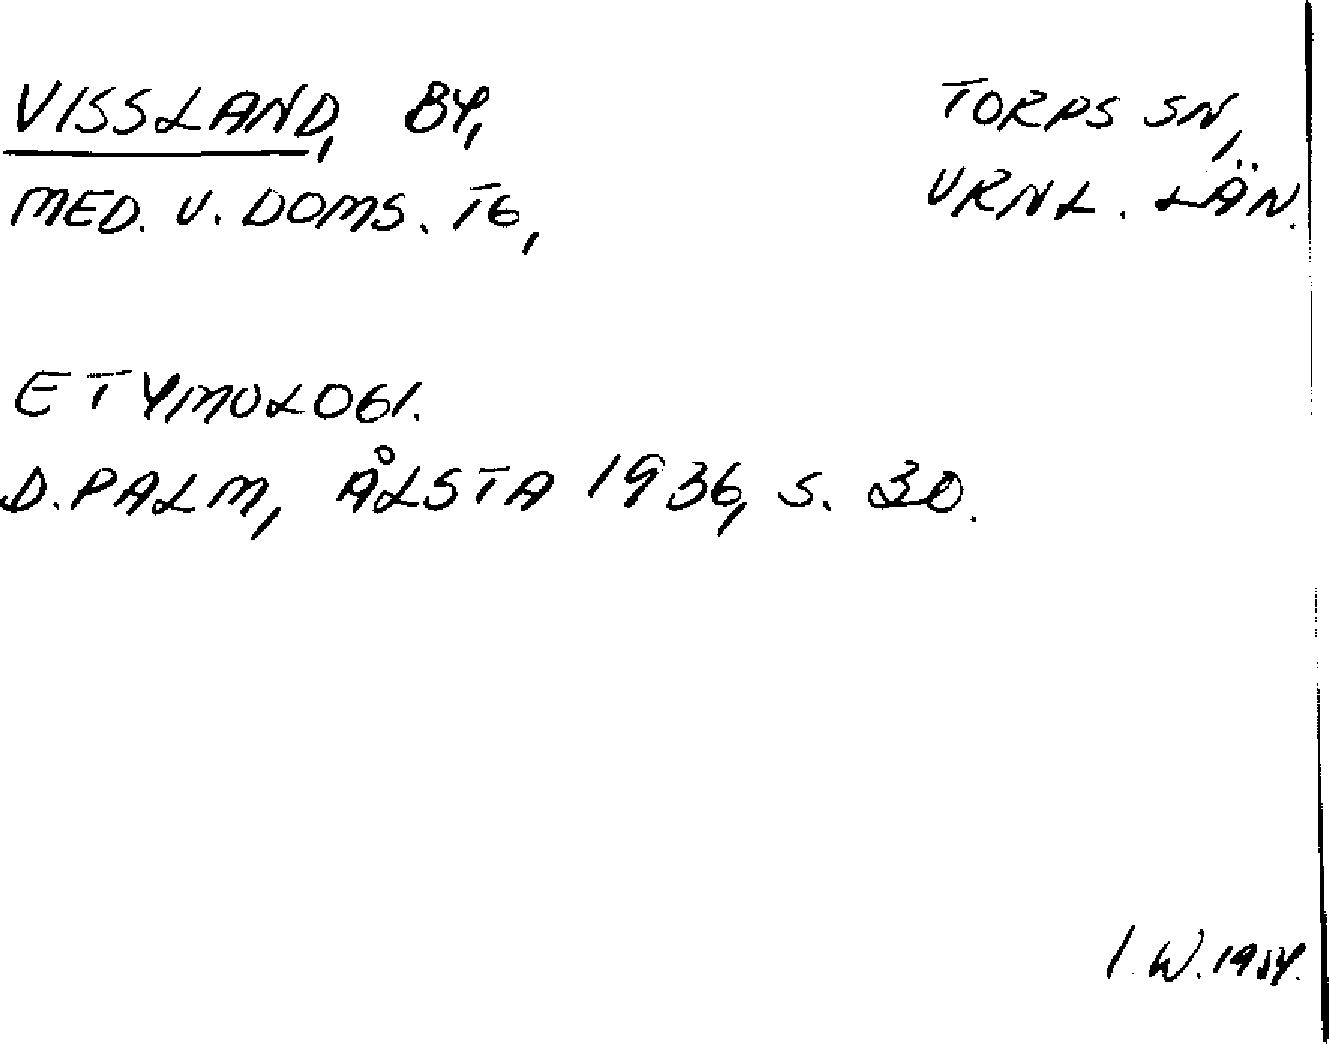 VISSLAND, BY,
TORPS SN,
MED. V. DOMS. TG,
VRNL. LÄN.
ETYMOLOGI.
D. PALM, ÅLSTA 1936, S. 30.
I. W. 1954.